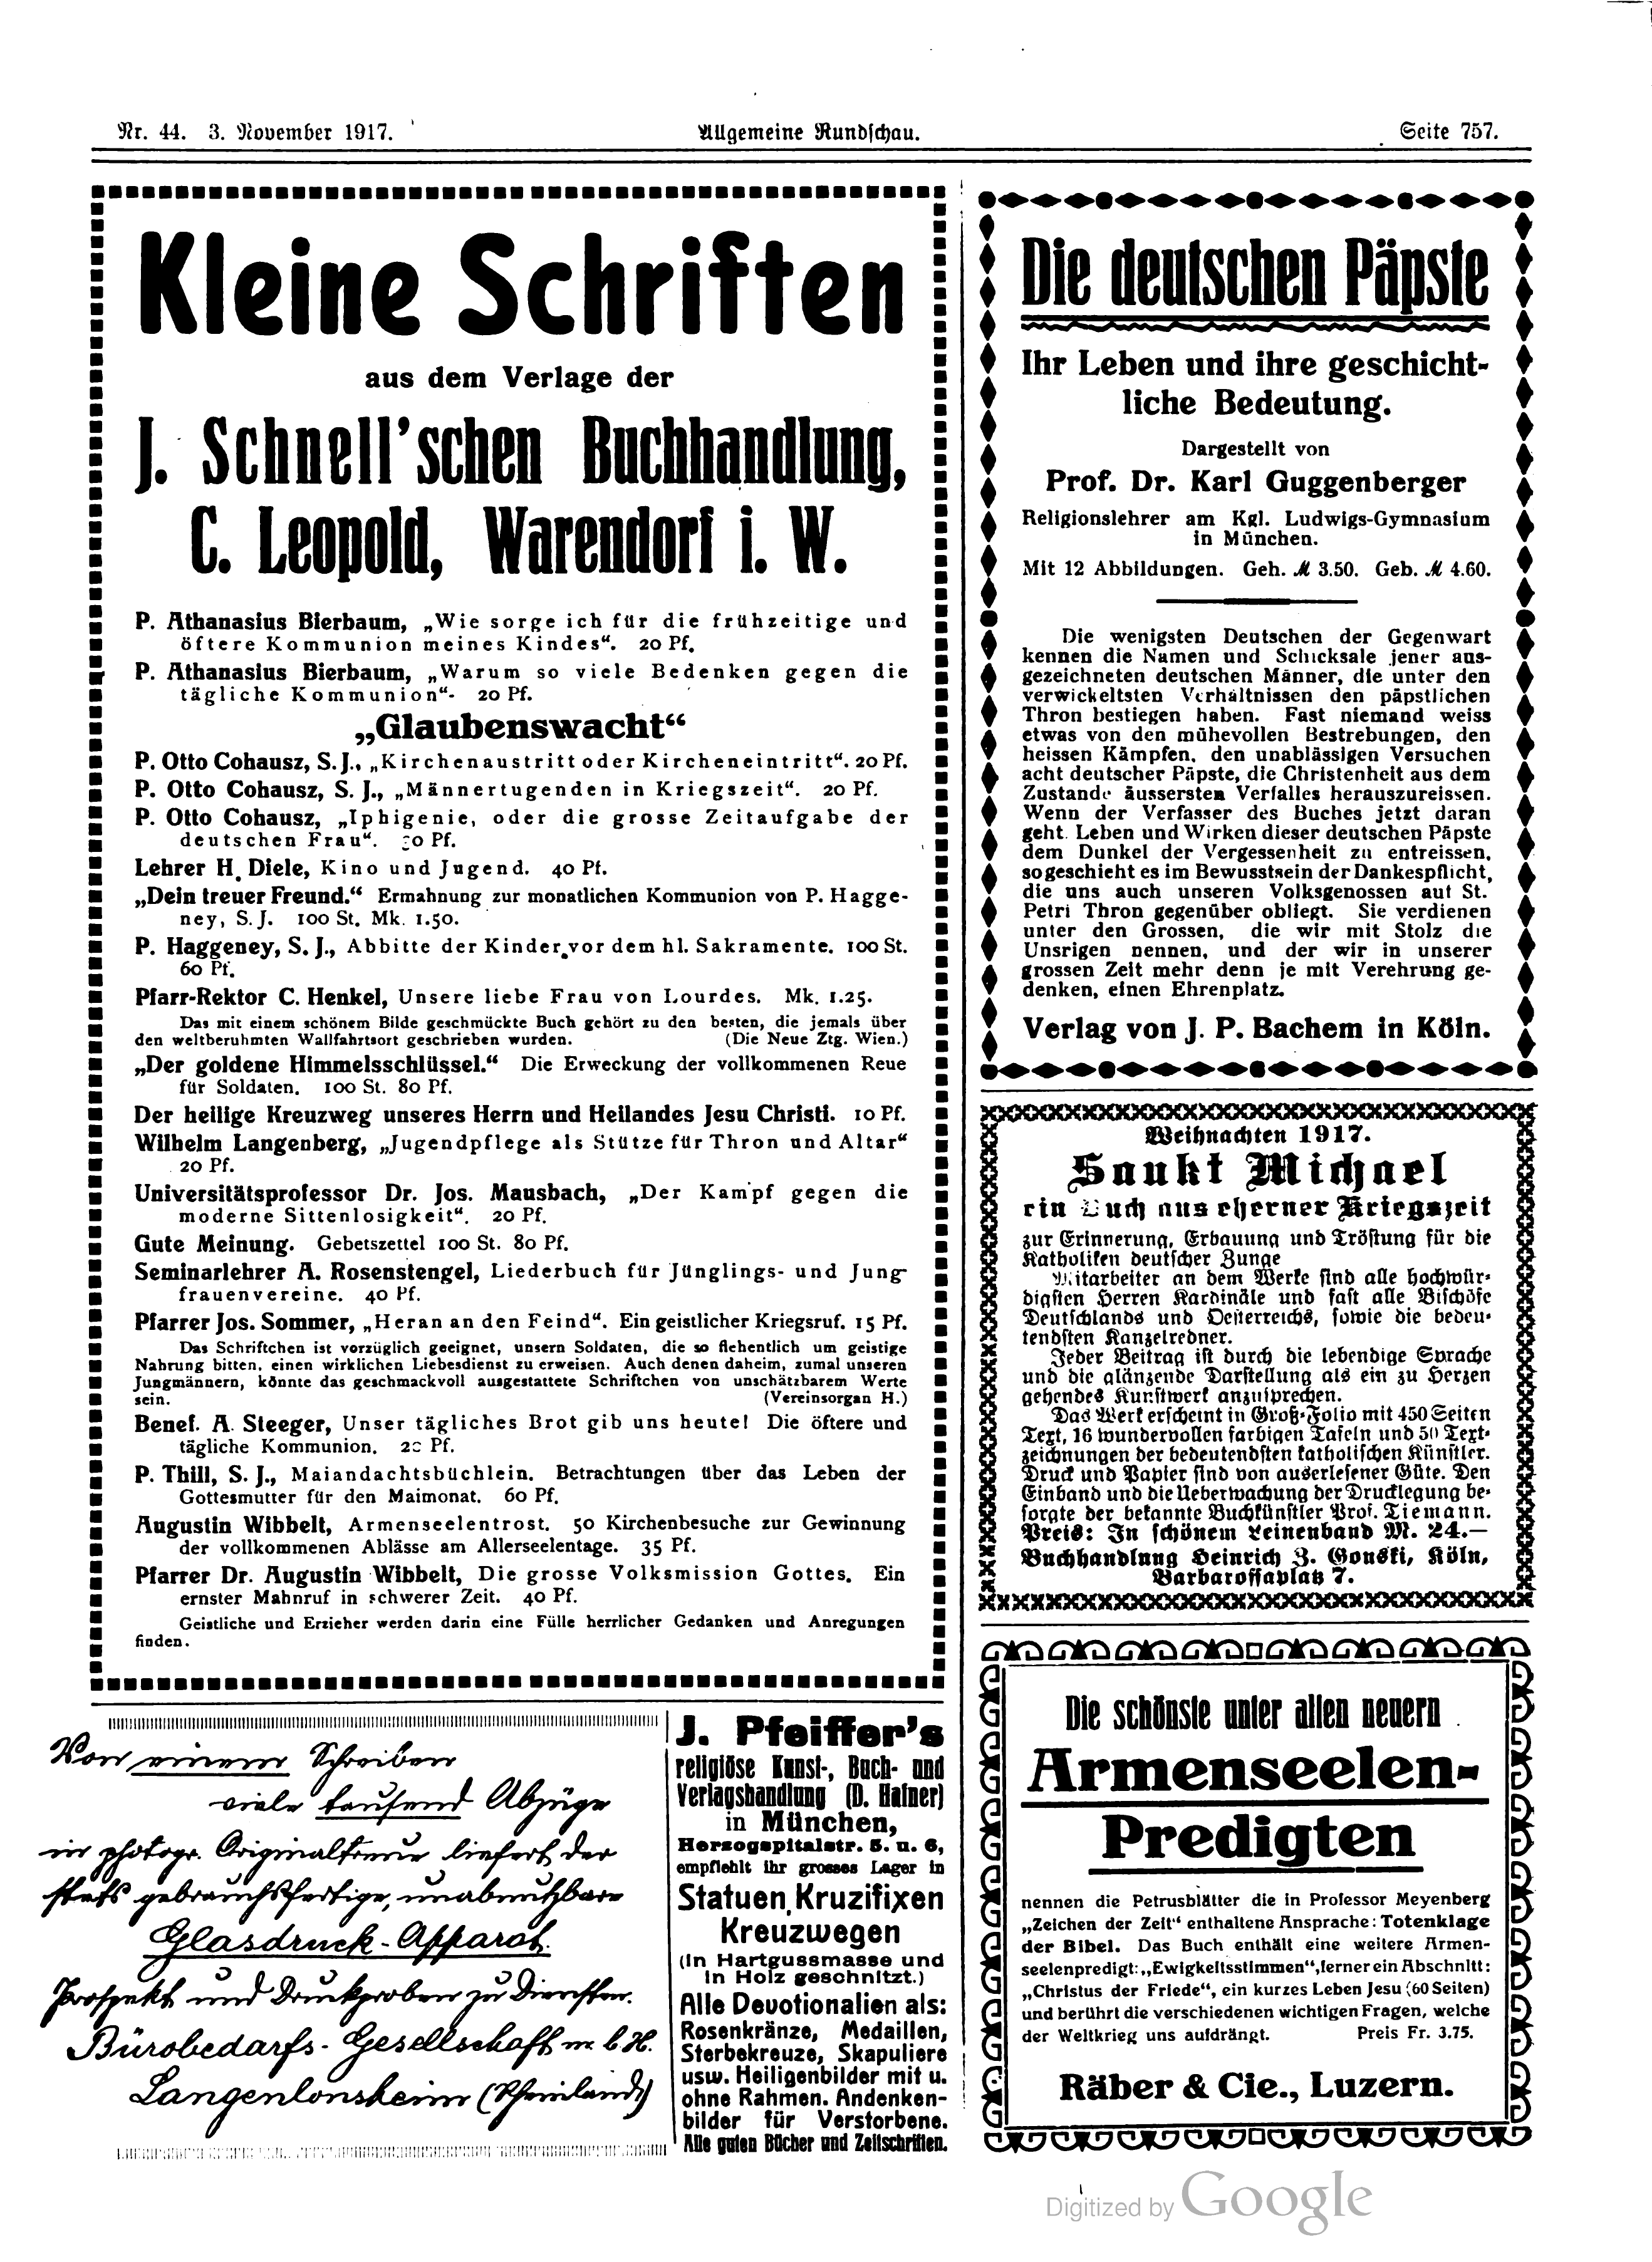 Nr. 44. 3. November 1917.
Allgemeine Rundschau.
Seite 757.
Kleine Schriften
aus dem Verlage der
J. Schnell'schen Buchhandlung,
C. Leopold, Warendorf i. W.
P. Athanasius Bierbaum, „Wie sorge ich für die frühzeitige und
öftere Kommunion meines Kindes“. 20 Pf.
P. Athanasius Bierbaum, „Warum so viele Bedenken gegen die
tägliche Kommunion“. 20 Pf.
„Glaubenswacht“
P. Otto Cohausz, S. J., „Kirchenaustritt oder Kircheneintritt“. 20 Pf.
P. Otto Cohausz, S. J., „Männertugenden in Kriegszeit“. 20 Pf.
P. Otto Cohausz, „Iphigenie, oder die grosse Zeitaufgabe der
deutschen Frau“. Pf.
Lehrer H. Diele, Kino und Jugend. 40 Pf.
„Dein treuer Freund.“ Ermahnung zur monatlichen Kommunion von P. Hagge-
ney, S. J. 100 St. Mk. 1.50.
P. Haggeney, S. J., Abbitte der Kinder vor dem hl. Sakramente. 100 St.
60 Pf.
Pfarr-Rektor C. Henkel, Unsere liebe Frau von Lourdes. Mk. 1.25.
Das mit einem schönem Bilde geschmückte Buch gehört zu den besten, die jemals über
den weltberuhmten Wallfahrtsort geschrieben wurden. (Die Neue Ztg. Wien.)
„Der goldene Himmelsschlüssel.“ Die Erweckung der vollkommenen Reue
für Soldaten. 100 St. 80 Pf.
Der heilige Kreuzweg unseres Herrn und Heilandes Jesu Christi. 10 Pf.
Wilhelm Langenberg, „Jugendpflege als Stütze für Thron und Altar“
20 Pf.
Universitätsprofessor Dr. Jos. Mausbach, „Der Kampf gegen die
moderne Sittenlosigkeit“. 20 Pf.
Gute Meinung. Gebetszettel 100 St. 80 Pf.
Seminarlehrer A. Rosenstengel, Liederbuch für Jünglings- und Jung-
frauenvereine. 40 Pf.
Pfarrer Jos. Sommer, „Heran an den Feind“. Ein geistlicher Kriegsruf. 15 Pf.
Das Schriftchen ist vorzüglich geeignet, unsern Soldaten, die so flehentlich um geistige
Nahrung bitten, einen wirklichen Liebesdienst zu erweisen. Auch denen daheim, zumal unseren
Jungmännern, könnte das geschmackvoll ausgestattete Schriftchen von unschätzbarem Werte
sein. (Vereinsorgan H.)
Benef. A. Steeger, Unser tägliches Brot gib uns heute! Die öftere und
tägliche Kommunion. 20 Pf.
P. Thill, S. J., Maiandachtsbüchlein. Betrachtungen über das Leben der
Gottesmutter für den Maimonat. 60 Pf.
Augustin Wibbelt, Armenseelentrost. 50 Kirchenbesuche zur Gewinnung
der vollkommenen Ablässe am Allerseelentage. 35 Pf.
Pfarrer Dr. Augustin Wibbelt, Die grosse Volksmission Gottes. Ein
ernster Mahnruf in schwerer Zeit. 40 Pf.
Geistliche und Erzieher werden darin eine Fülle herrlicher Gedanken und Anregungen
finden.
Von einem Schreiben
viele tausend Abzüge
in photogr. Originaltreue liefert der
stets gebrauchsfertige, unabnutzbare
Glasdruck-Apparat.
Prospekt und Druckproben zu Diensten.
Bürobedarfs-Gesellschaft m. b. H.
Langenlonsheim (Rheinland)
J. Pfeiffer's
religiöse Kunst-, Buch- und
Verlagshandlung (D. Hafner)
in München,
Herzogspitalstr. 5. u. 6,
empfiehlt ihr grosses Lager in
Statuen, Kruzifixen
Kreuzwegen
(in Hartgussmasse und
in Holz geschnitzt.)
Alle Devotionalien als:
Rosenkränze, Medaillen,
Sterbekreuze, Skapuliere
usw. Heiligenbilder mit u.
ohne Rahmen. Andenken-
bilder für Verstorbene.
Alle guten Bücher und Zeitschriften.
Die deutschen Päpste
Ihr Leben und ihre geschicht-
liche Bedeutung.
Dargestellt von
Prof. Dr. Karl Guggenberger
Religionslehrer am Kgl. Ludwigs-Gymnasium
in München.
Mit 12 Abbildungen. Geh. ℳ 3.50. Geb. ℳ 4.60.
Die wenigsten Deutschen der Gegenwart
kennen die Namen und Schicksale jener aus-
gezeichneten deutschen Männer, die unter den
verwickeltsten Verhältnissen den päpstlichen
Thron bestiegen haben. Fast niemand weiss
etwas von den mühevollen Bestrebungen, den
heissen Kämpfen, den unablässigen Versuchen
acht deutscher Päpste, die Christenheit aus dem
Zustande äussersten Verfalles herauszureissen.
Wenn der Verfasser des Buches jetzt daran
geht, Leben und Wirken dieser deutschen Päpste
dem Dunkel der Vergessenheit zu entreissen,
so geschieht es im Bewusstsein der Dankespflicht,
die uns auch unseren Volksgenossen auf St.
Petri Thron gegenüber obliegt. Sie verdienen
unter den Grossen, die wir mit Stolz die
Unsrigen nennen, und der wir in unserer
grossen Zeit mehr denn je mit Verehrung ge-
denken, einen Ehrenplatz.
Verlag von J. P. Bachem in Köln.
Weihnachten 1917.
Sankt Michael
ein Buch aus eherner Kriegszeit
zur Erinnerung, Erbauung und Tröstung für die
Katholiken deutscher Zunge
Mitarbeiter an dem Werke sind alle hochwür-
digsten Herren Kardinäle und fast alle Bischöfe
Deutschlands und Oesterreichs, sowie die bedeu-
tendsten Kanzelredner.
Jeder Beitrag ist durch die lebendige Sprache
und die glänzende Darstellung als ein zu Herzen
gehendes Kunstwerk anzusprechen.
Das Werk erscheint in Groß-Folio mit 450 Seiten
Text, 16 wundervollen farbigen Tafeln und 50 Text-
zeichnungen der bedeutendsten katholischen Künstler.
Druck und Papier sind von auserlesener Güte. Den
Einband und die Ueberwachung der Drucklegung be-
sorgte der bekannte Buchkünstler Prof. Tiemann.
Preis: In schönem Leinenband M. 24.—
Buchhandlung Heinrich Z. Gonski, Köln,
Barbarossaplatz 7.
Die schönste unter allen neuern
Armenseelen-
Predigten
nennen die Petrusblätter die in Professor Meyenberg
„Zeichen der Zeit“ enthaltene Ansprache: Totenklage
der Bibel. Das Buch enthält eine weitere Armen-
seelenpredigt: „Ewigkeitsstimmen“, ferner ein Abschnitt:
„Christus der Friede“, ein kurzes Leben Jesu (60 Seiten)
und berührt die verschiedenen wichtigen Fragen, welche
der Weltkrieg uns aufdrängt. Preis Fr. 3.75.
Räber & Cie., Luzern.
Digitized by Google